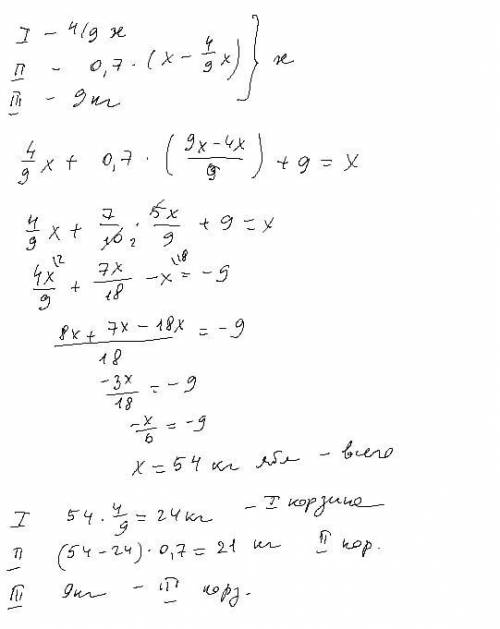 I - 4/9 x
II - 0,7 · (x - 4/9 x) } x
III - 9кг
4/9 x + 0,7 · ((9x - 4x)/9) + 9 = x
4/9 x + 7/10 2 · 5x/9 + 9 = x
4x/9 \2 + 7x/18 - x \18 = -9
(8x + 7x - 18x)/18 = -9
-3x/18 = -9
-x/6 = -9
x = 54 кг ябл - всего
I 54 · 4/9 = 24кг - I корзина
II (54 - 24) · 0,7 = 21 кг II кор.
III 9кг - III корз.